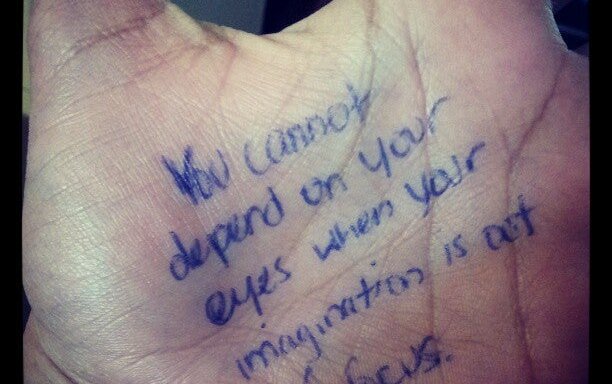 You cannot
depend on your
eyes when your
imagination is out
focus.